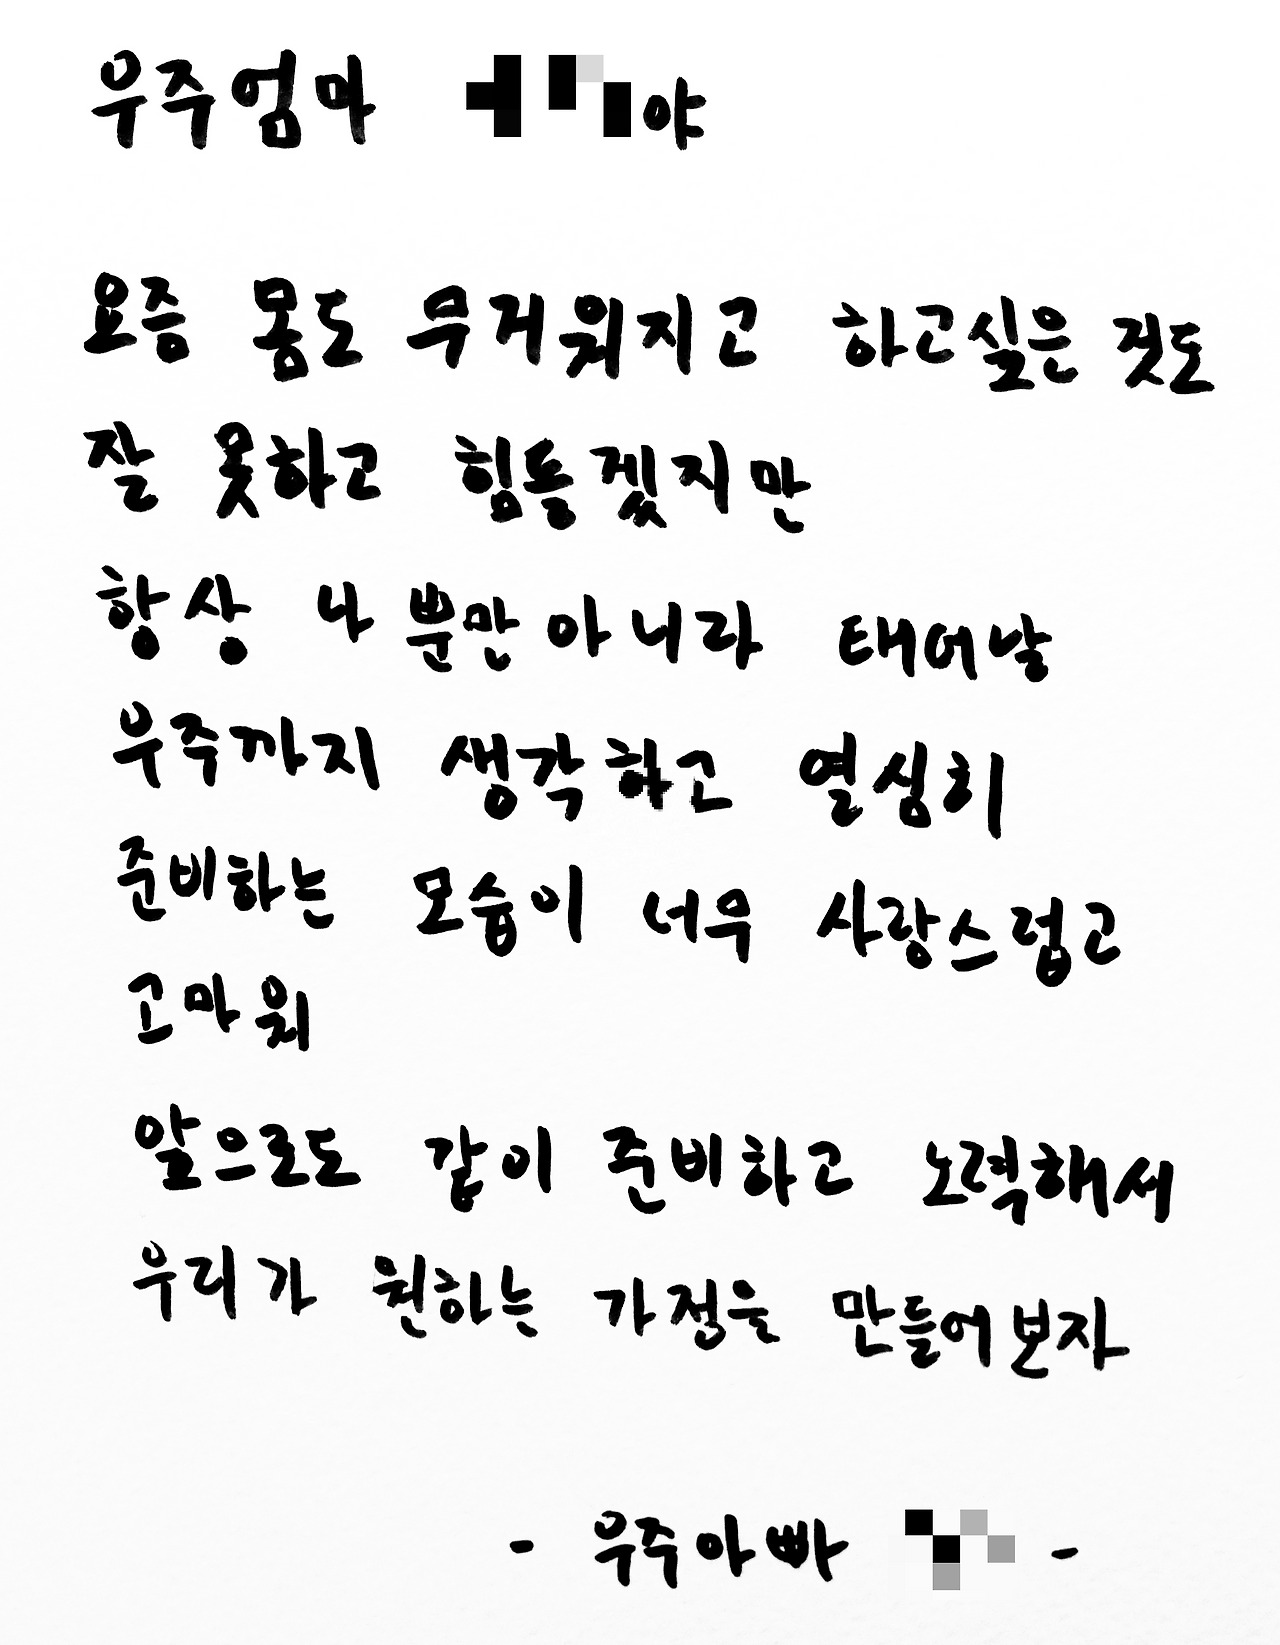 우주엄마 야
요즘 몸도 무거워지고 하고싶은 것도
잘 못하고 힘들겠지만
항상 나 뿐만아니라 태어날
우주까지 생각하고 열심히
준비하는 모습이 너무 사랑스럽고
고마워
앞으로도 같이 준비하고 노력해서
우리가 원하는 가정을 만들어보자
- 우주아빠 -